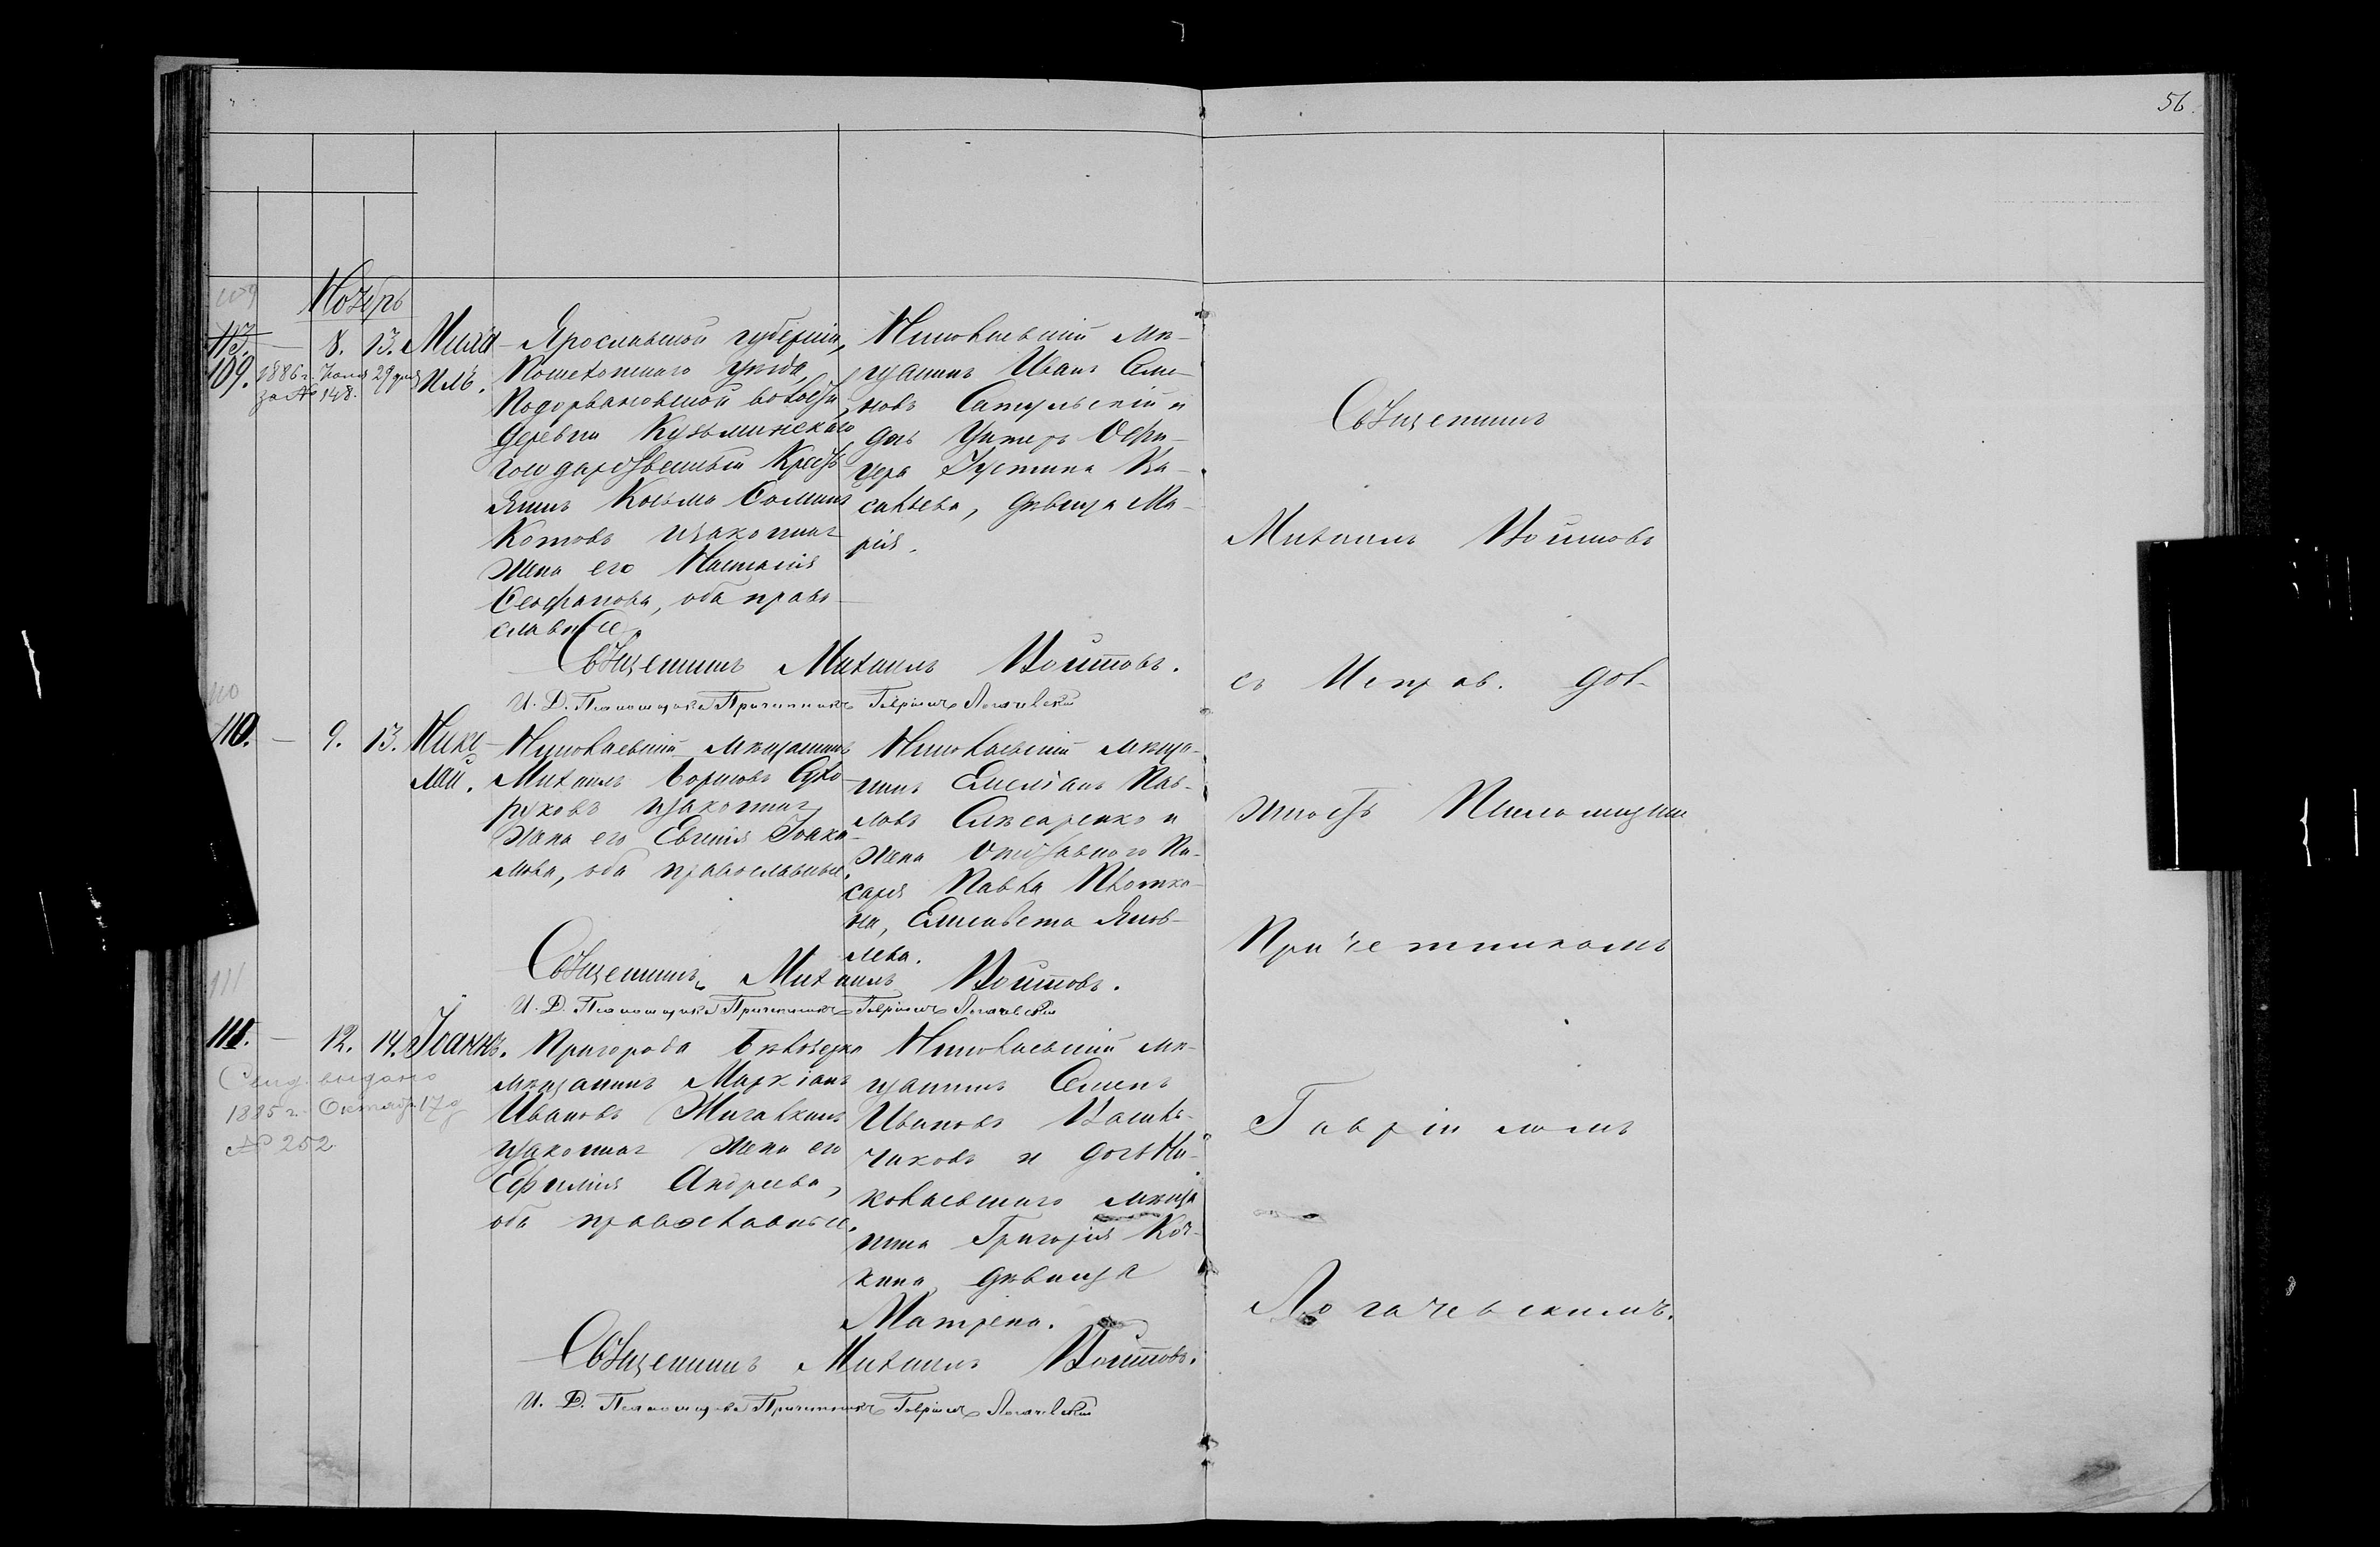 56.
109
Ноябрь
115. — 8. 13. Миха-
109. 1886 г. Іюля 29 дня илъ.
за № 148.
Ярославской губерніи,
Пошехонскаго уѣзда,
Подорвановской волости,
деревни Кузьминскаго
государственный Кресть
янинъ Косьма
Котовъ и законная
жена его Наталія
Ѳеофанова, оба право-
славные.
Николаевскій мѣ-
щанинъ Иванъ Семе-
новъ и
дочь Унтеръ Офи-
цера Іустина Ка-
сапьева, дѣвица Ма-
рія.
Священникъ Михаилъ Войтовъ.
И. Д. Псаломщика Причетникъ Гавріилъ Логачевскій
110
110. — 9. 13. Нико-
лай.
Николаевскій мѣщанинъ
Михаилъ Борисовъ Сухо-
руковъ и законная
жена его Евгенія Іоаки-
мова, оба православные.
Николаевскій мѣща-
нинъ Емеліанъ Пав-
ловъ Слѣсаренко и
жена Отставного Пи-
саря Павла Плотки-
на, Елисавета Яков-
лева.
Священникъ Михаилъ Войтовъ.
И. Д. Псаломщика Причетникъ Гавріилъ Логачевскій
111
111. — 12. 14. Іоаннъ.
Свид. выдано
1885 г. Октябр. 17 д
№ 252
Пригорода Бѣловодска
мѣщанинъ Маркіанъ
Ивановъ Жигалкинъ
и законная жена его
Евфимія Андреева,
оба православные.
Николаевскій мѣ-
щанинъ Семенъ
Ивановъ
и дочь Ни-
колаевскаго мѣща
нина Григорія Коч-
кина дѣвица
Матрена.
Священникъ Михаилъ Войтовъ.
И. Д. Псаломщика Причетникъ Гавріилъ Логачевскій
Священникъ
Михаилъ Войтовъ
съ Исправ. дол-
жность Псаломщика
Причетникомъ
Гавріиломъ
Логачевскимъ.